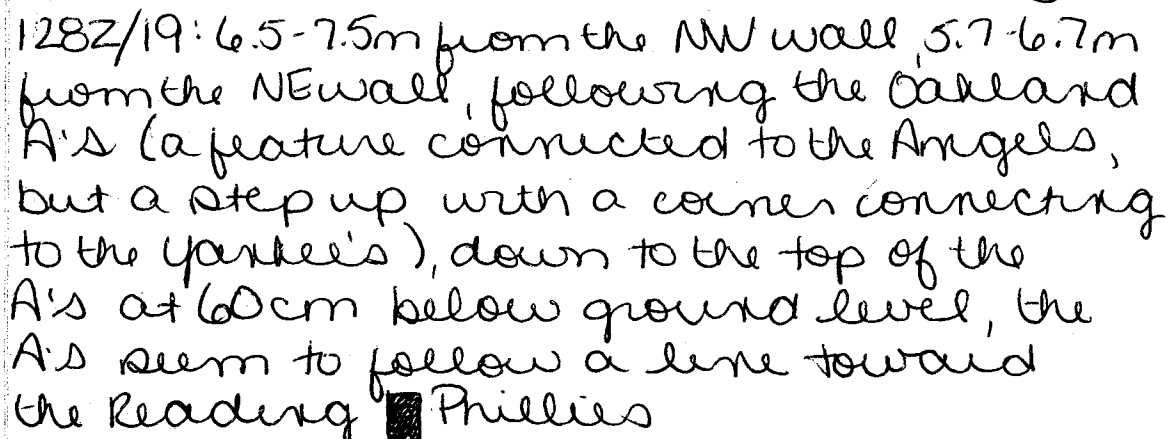 1282/19: 6.5-7.5m from the NW wall, 5.7-6.7m
from the NE wall, following the Oakland
A's (a feature connected to the Angels,
but a step up with a corner connecting
to the Yankee's), down to the top of the
A's at 60cm below ground level, the
A's seem to follow a line toward
the Reading Phillies